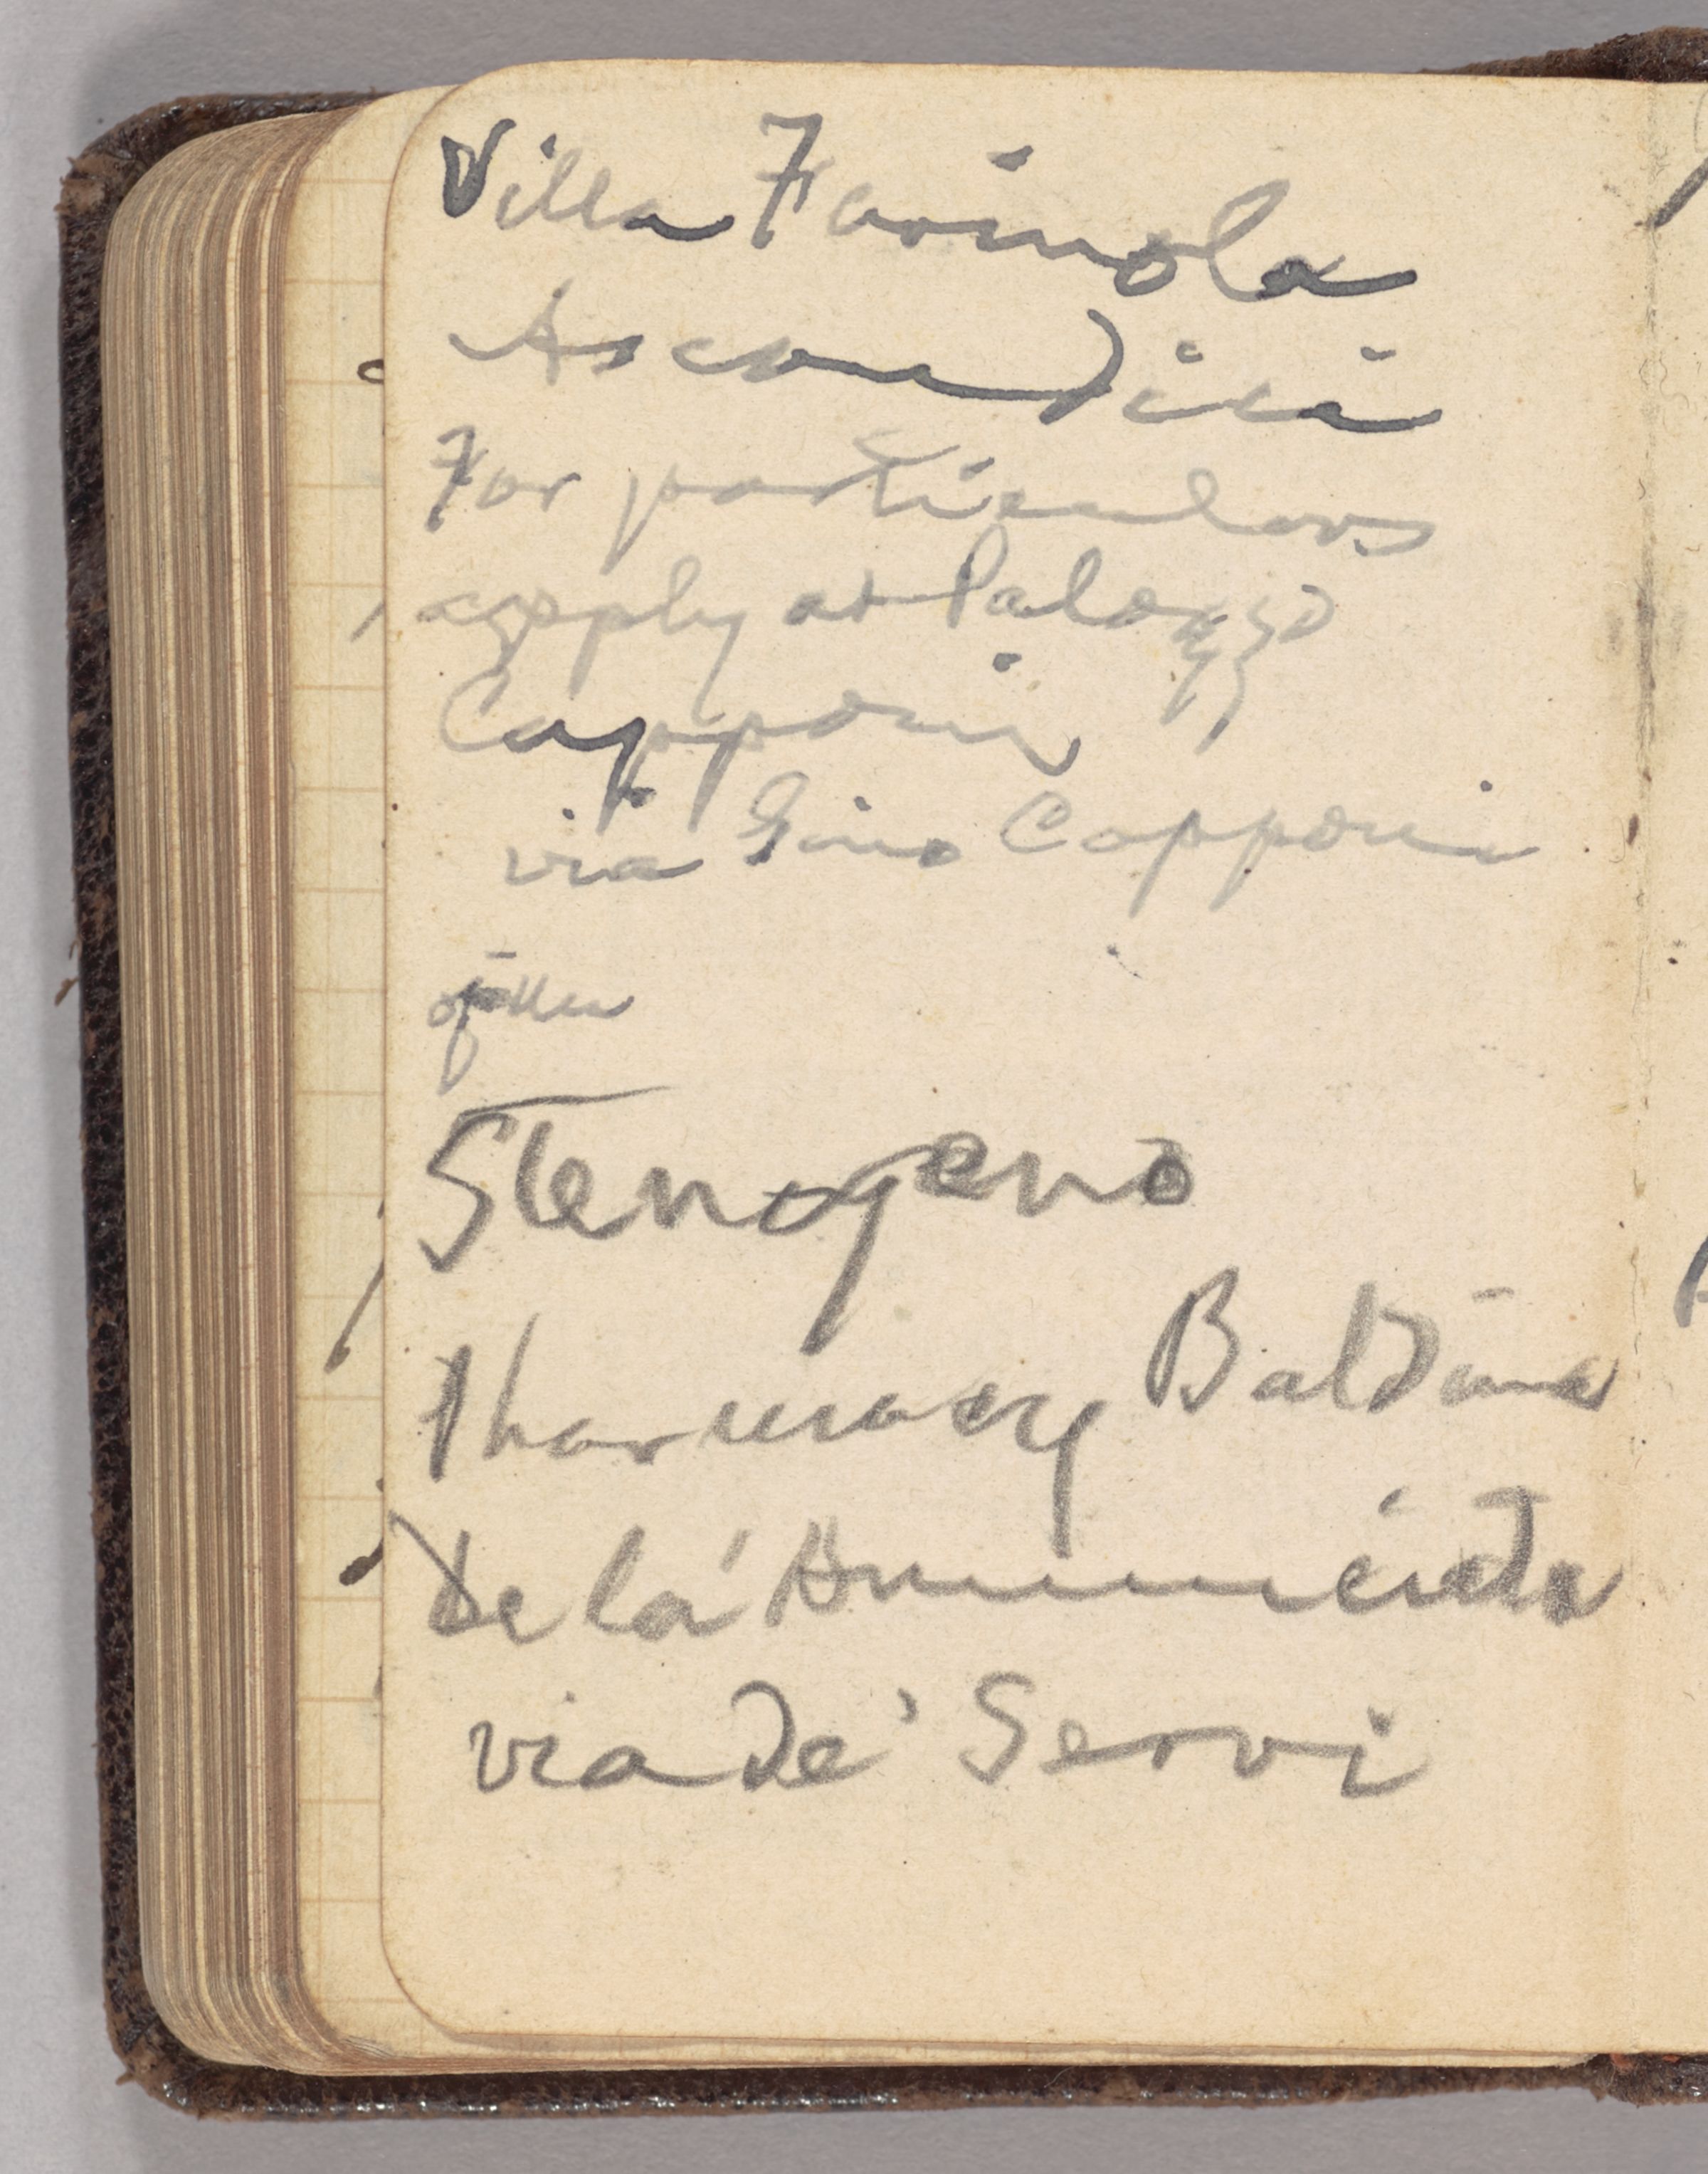 Villa Farinola
Ascondici
For particulars
apply at Palazzo
Capponi
via Gino Capponi
Stenogeno
Pharmacy Baldina
De la' Annunciata
via de' Servi